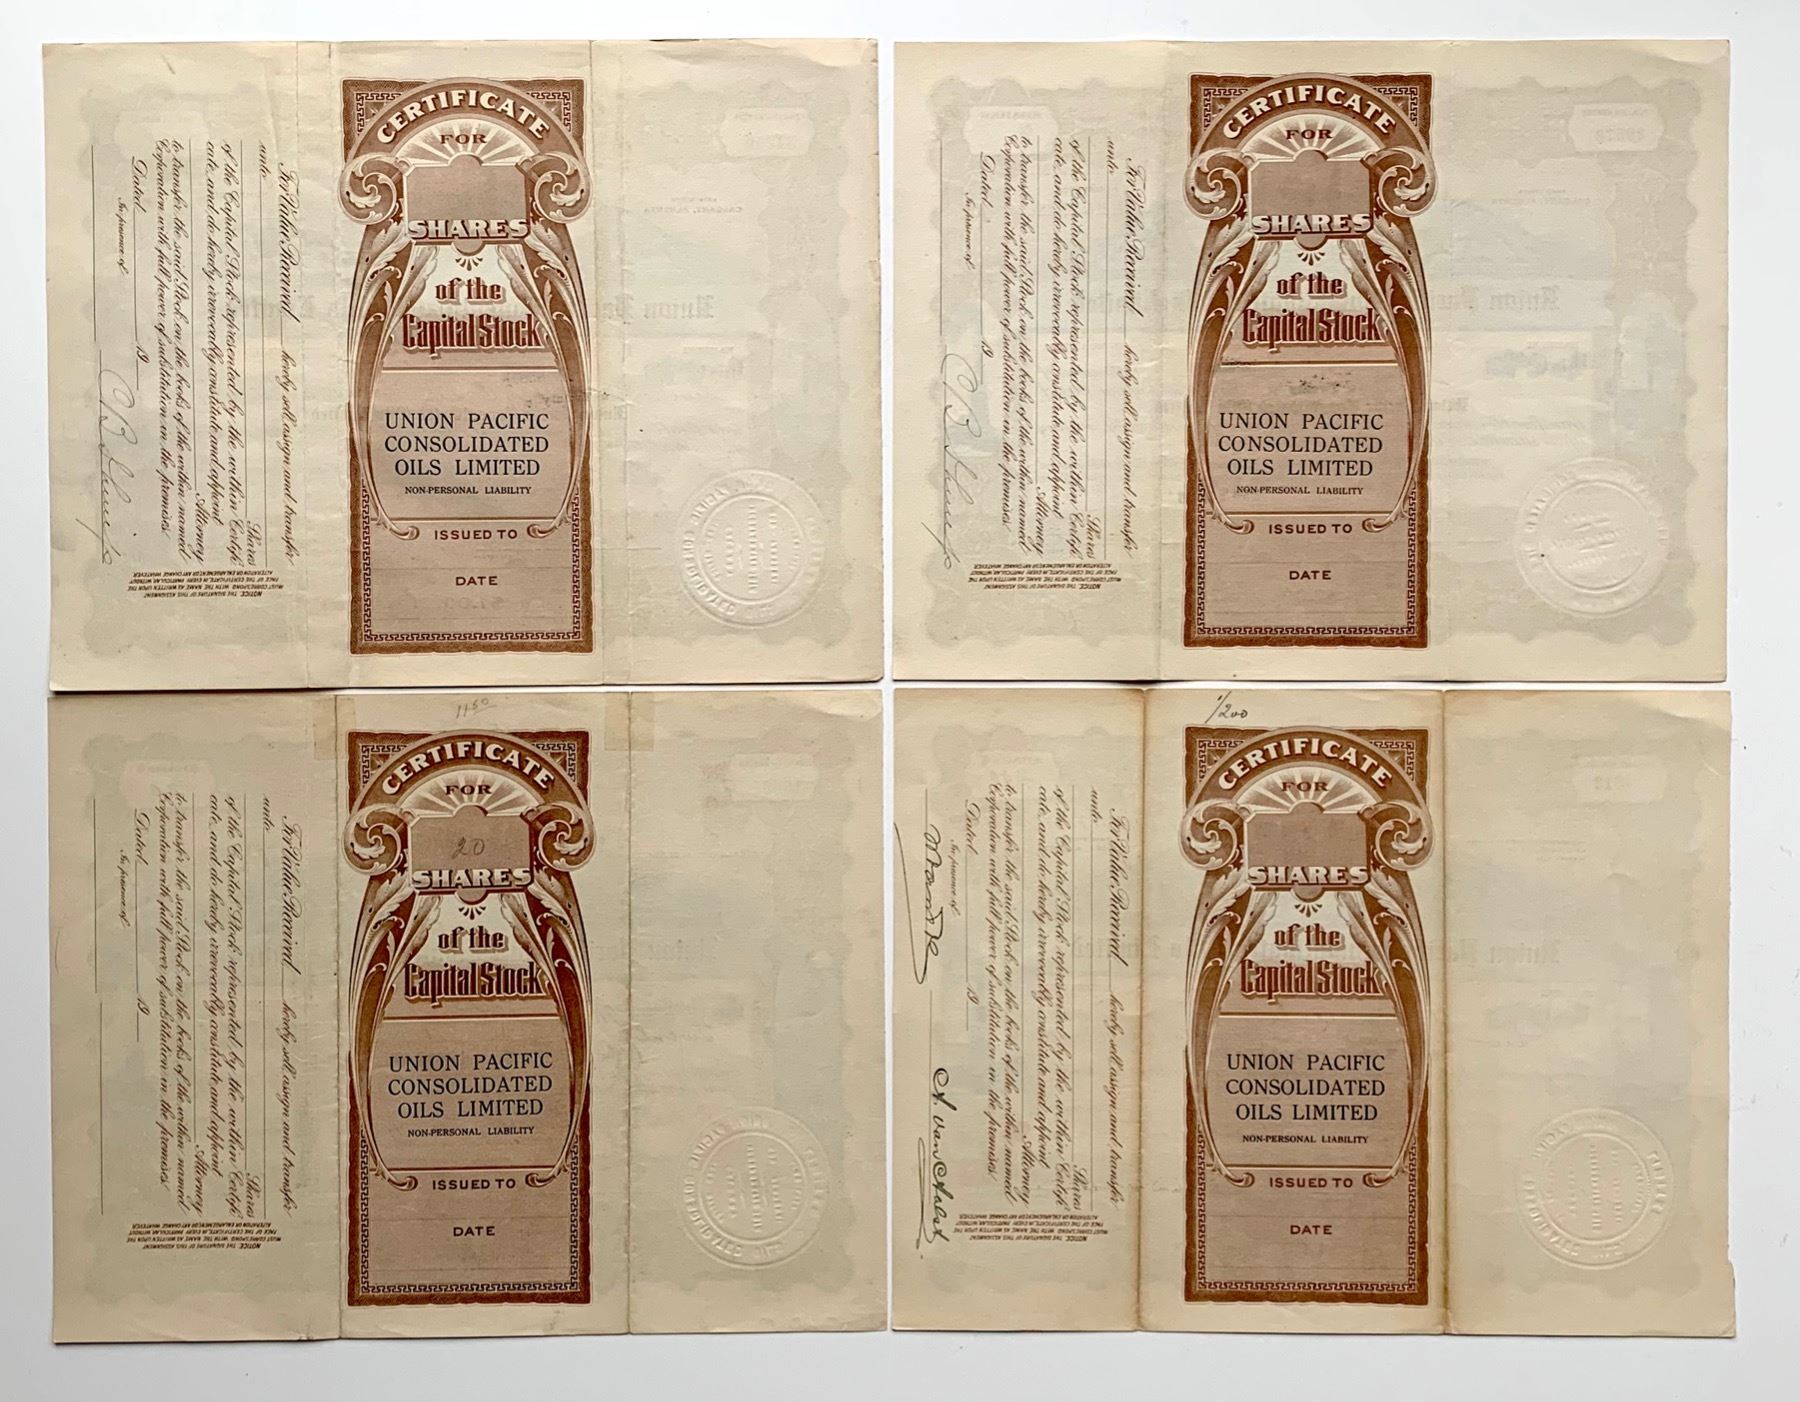 CERTIFICATE
FOR
SHARES
of the
Capital Stock
UNION PACIFIC
CONSOLIDATED
OILS LIMITED
NON-PERSONAL LIABILITY
ISSUED TO
DATE
For Value Received hereby sell, assign and transfer
unto
Shares
of the Capital Stock represented by the within Certifi-
cate, and do hereby irrevocably constitute and appoint
Attorney
to transfer the said Stock on the books of the within named
Corporation with full power of substitution in the premises.
Dated 19
In presence of
NOTICE. THE SIGNATURE OF THIS ASSIGNMENT
MUST CORRESPOND WITH THE NAME AS WRITTEN UPON THE
FACE OF THE CERTIFICATE, IN EVERY PARTICULAR, WITHOUT
ALTERATION OR ENLARGEMENT, OR ANY CHANGE WHATEVER
CERTIFICATE
FOR
SHARES
of the
Capital Stock
UNION PACIFIC
CONSOLIDATED
OILS LIMITED
NON-PERSONAL LIABILITY
ISSUED TO
DATE
For Value Received hereby sell, assign and transfer
unto
Shares
of the Capital Stock represented by the within Certifi-
cate, and do hereby irrevocably constitute and appoint
Attorney
to transfer the said Stock on the books of the within named
Corporation with full power of substitution in the premises.
Dated 19
In presence of
NOTICE. THE SIGNATURE OF THIS ASSIGNMENT
MUST CORRESPOND WITH THE NAME AS WRITTEN UPON THE
FACE OF THE CERTIFICATE, IN EVERY PARTICULAR, WITHOUT
ALTERATION OR ENLARGEMENT, OR ANY CHANGE WHATEVER
1150
CERTIFICATE
FOR
20
SHARES
of the
Capital Stock
UNION PACIFIC
CONSOLIDATED
OILS LIMITED
NON-PERSONAL LIABILITY
ISSUED TO
DATE
For Value Received hereby sell, assign and transfer
unto
Shares
of the Capital Stock represented by the within Certifi-
cate, and do hereby irrevocably constitute and appoint
Attorney
to transfer the said Stock on the books of the within named
Corporation with full power of substitution in the premises.
Dated 19
In presence of
NOTICE. THE SIGNATURE OF THIS ASSIGNMENT
MUST CORRESPOND WITH THE NAME AS WRITTEN UPON THE
FACE OF THE CERTIFICATE, IN EVERY PARTICULAR, WITHOUT
ALTERATION OR ENLARGEMENT, OR ANY CHANGE WHATEVER
1/200
CERTIFICATE
FOR
SHARES
of the
Capital Stock
UNION PACIFIC
CONSOLIDATED
OILS LIMITED
NON-PERSONAL LIABILITY
ISSUED TO
DATE
For Value Received hereby sell, assign and transfer
unto
Shares
of the Capital Stock represented by the within Certifi-
cate, and do hereby irrevocably constitute and appoint
Attorney
to transfer the said Stock on the books of the within named
Corporation with full power of substitution in the premises.
Dated 19
In presence of
NOTICE. THE SIGNATURE OF THIS ASSIGNMENT
MUST CORRESPOND WITH THE NAME AS WRITTEN UPON THE
FACE OF THE CERTIFICATE, IN EVERY PARTICULAR, WITHOUT
ALTERATION OR ENLARGEMENT, OR ANY CHANGE WHATEVER